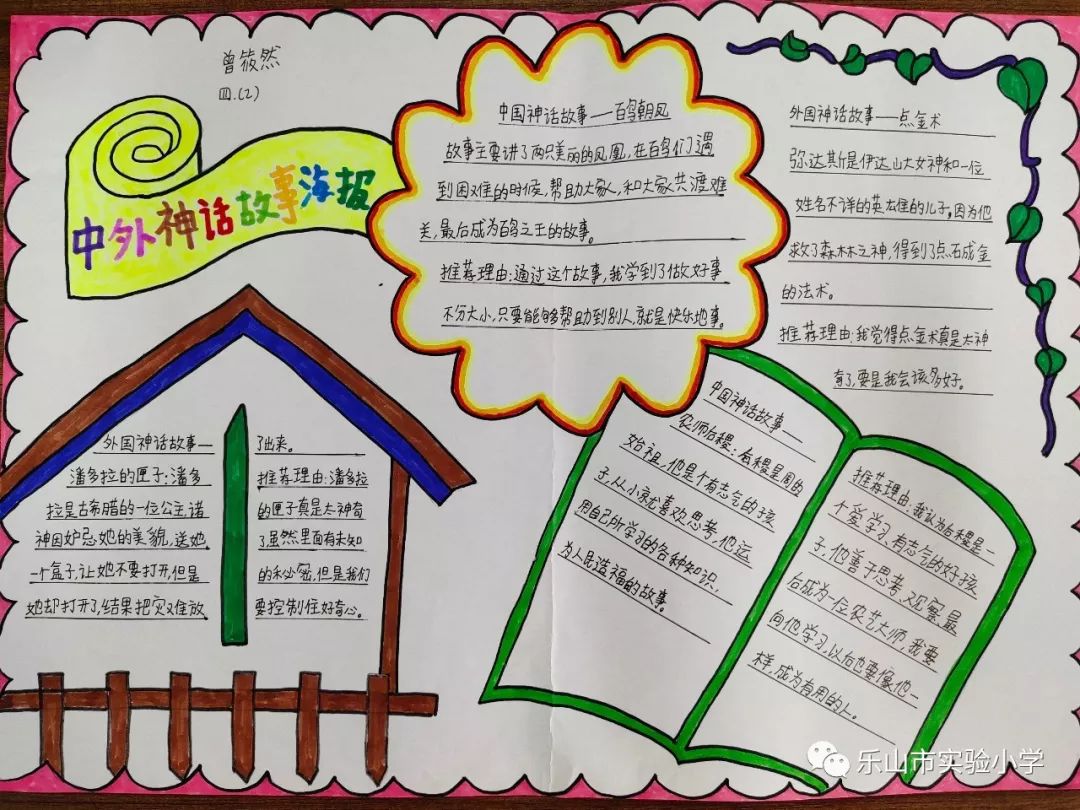 曾筱然
四.(2)
中外神话故事海报
中国神话故事——百鸟朝凤
故事主要讲了两只美丽的凤凰,在百鸟们遇
到困难的时候,帮助大家,和大家共渡难
关,最后成为百鸟之王的故事。
推荐理由:通过这个故事,我学到了做好事
不分大小,只要能够帮助到别人,就是快乐地事。
外国神话故事——点金术
弥达斯是伊达山大女神和一位
姓名不详的英雄的儿子。因为他
救了森林之神,得到了点石成金
的法术。
推荐理由:我觉得点金术真是太神
奇了,要是我会该多好。
外国神话故事——
潘多拉的匣子:潘多
拉是古希腊的一位公主,诸
神因妒忌她的美貌,送她
一个盒子,让她不要打开,但是
她却打开了,结果把灾难放
了出来。
推荐理由:潘多拉
的匣子真是太神奇
了虽然里面有未知
的秘密,但是我们
要控制住好奇心。
中国神话故事——
农师后稷:后稷是周的
始祖,他是个有志气的孩
子,从小就喜欢思考,他运
用自己所学习的各种知识,
为人民造福的故事。
推荐理由:我认为后稷是一
个爱学习,有志气的好孩
子,他善于思考、观察,最
后成为一位农艺大师,我要
向他学习,以后也要像他一
样,成为有用的人。
乐山市实验小学